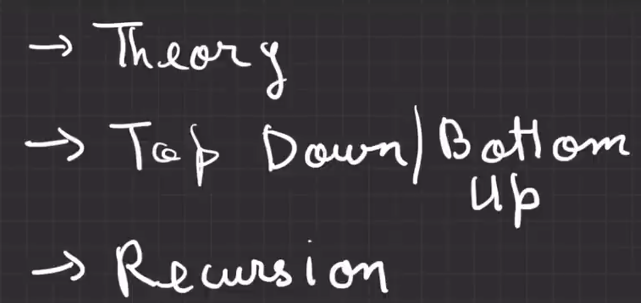 → Theory
→ Top Down/Bottom
Up
→ Recursion